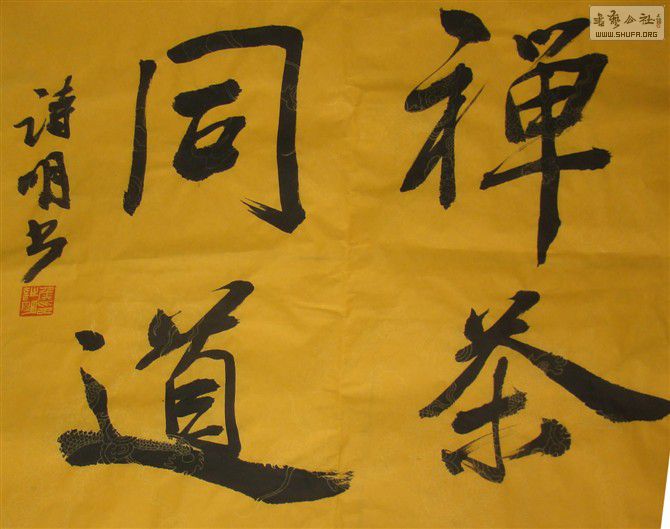 禅茶
同道
诗明书
书艺公社
WWW.SHUFA.ORG